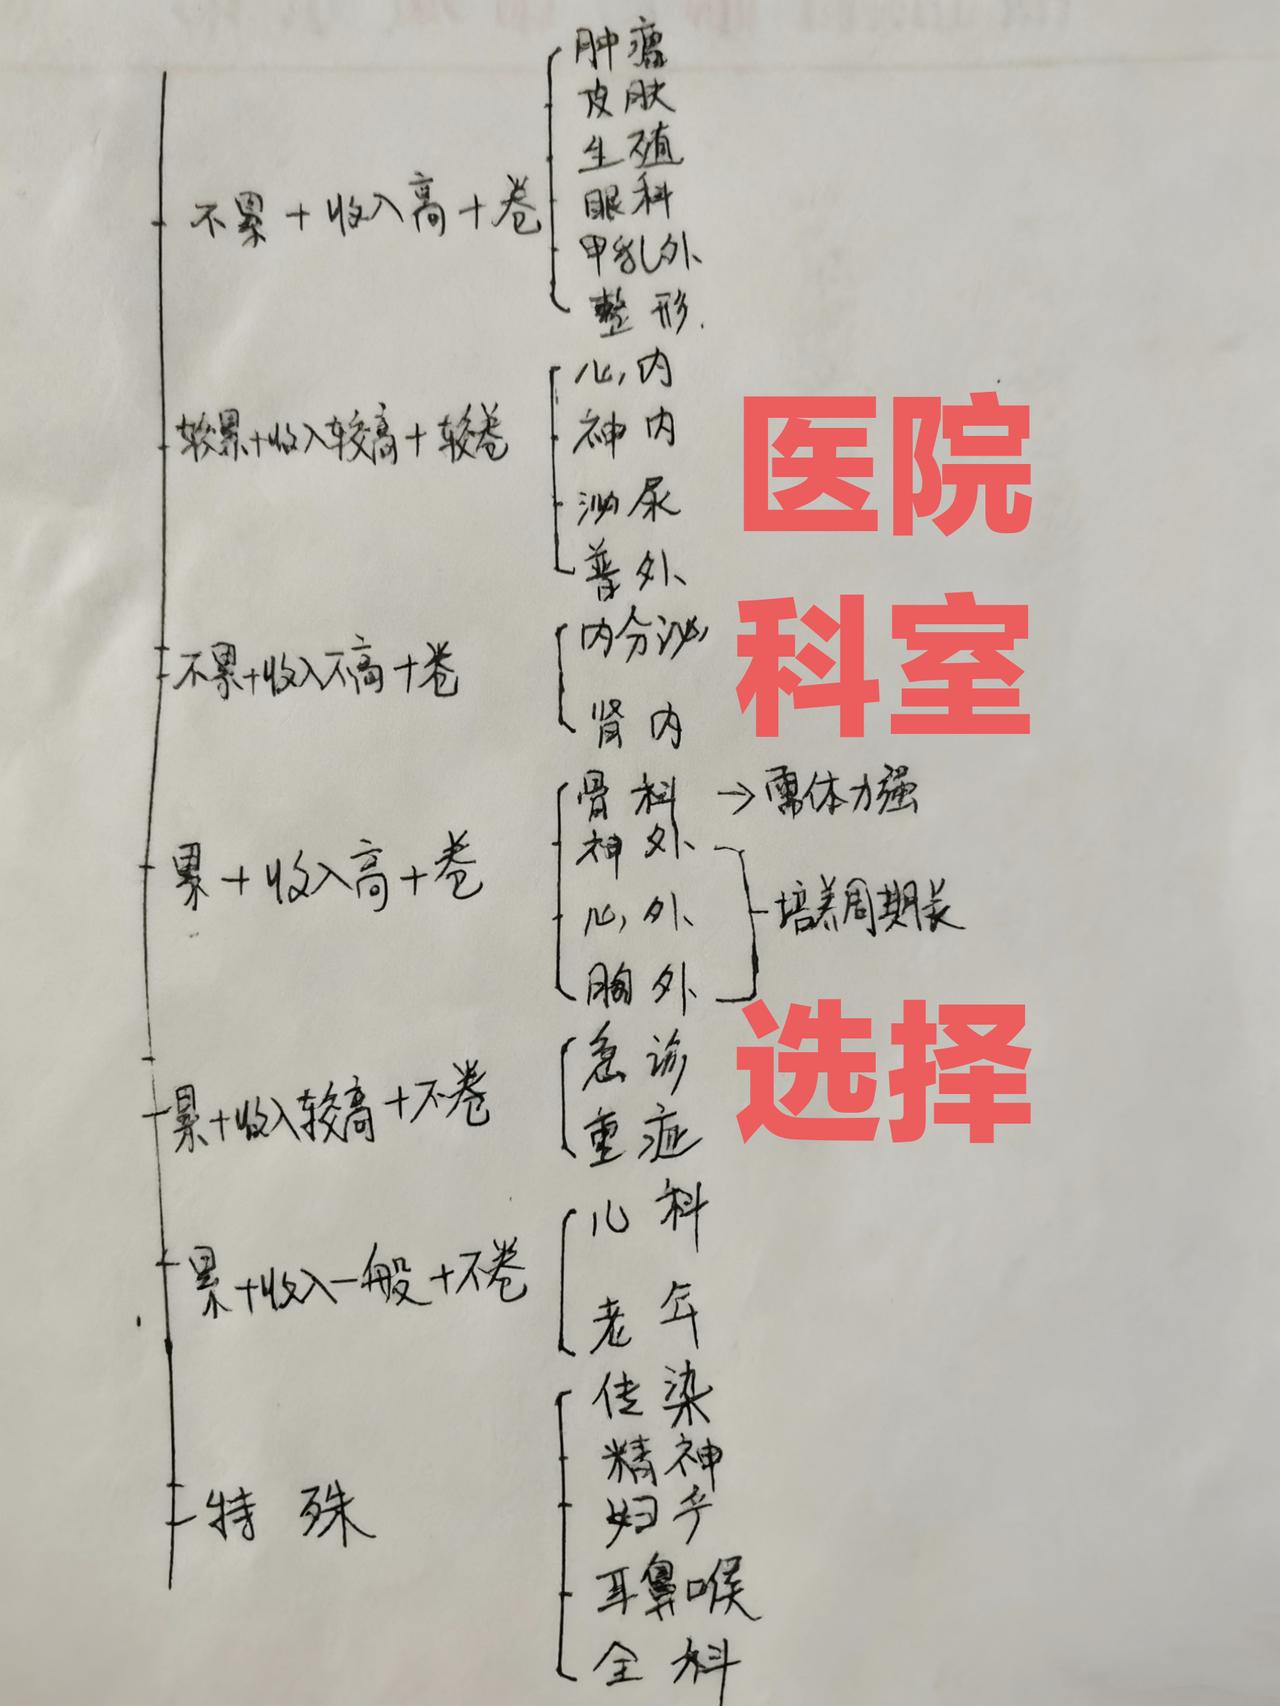 不累+收入高+卷
肿瘤
皮肤
生殖
眼科
甲乳外
整形.
较累+收入较高+较卷
心内
神内
泌尿
普外
不累+收入不高+卷
内分泌
肾内
累+收入高+卷
骨科→需体力强
神外
心外
胸外
培养周期长
累+收入较高+不卷
急诊
重症
累+收入一般+不卷
儿科
老年
特殊
传染
精神
妇产
耳鼻喉
全科
医院
科室
选择